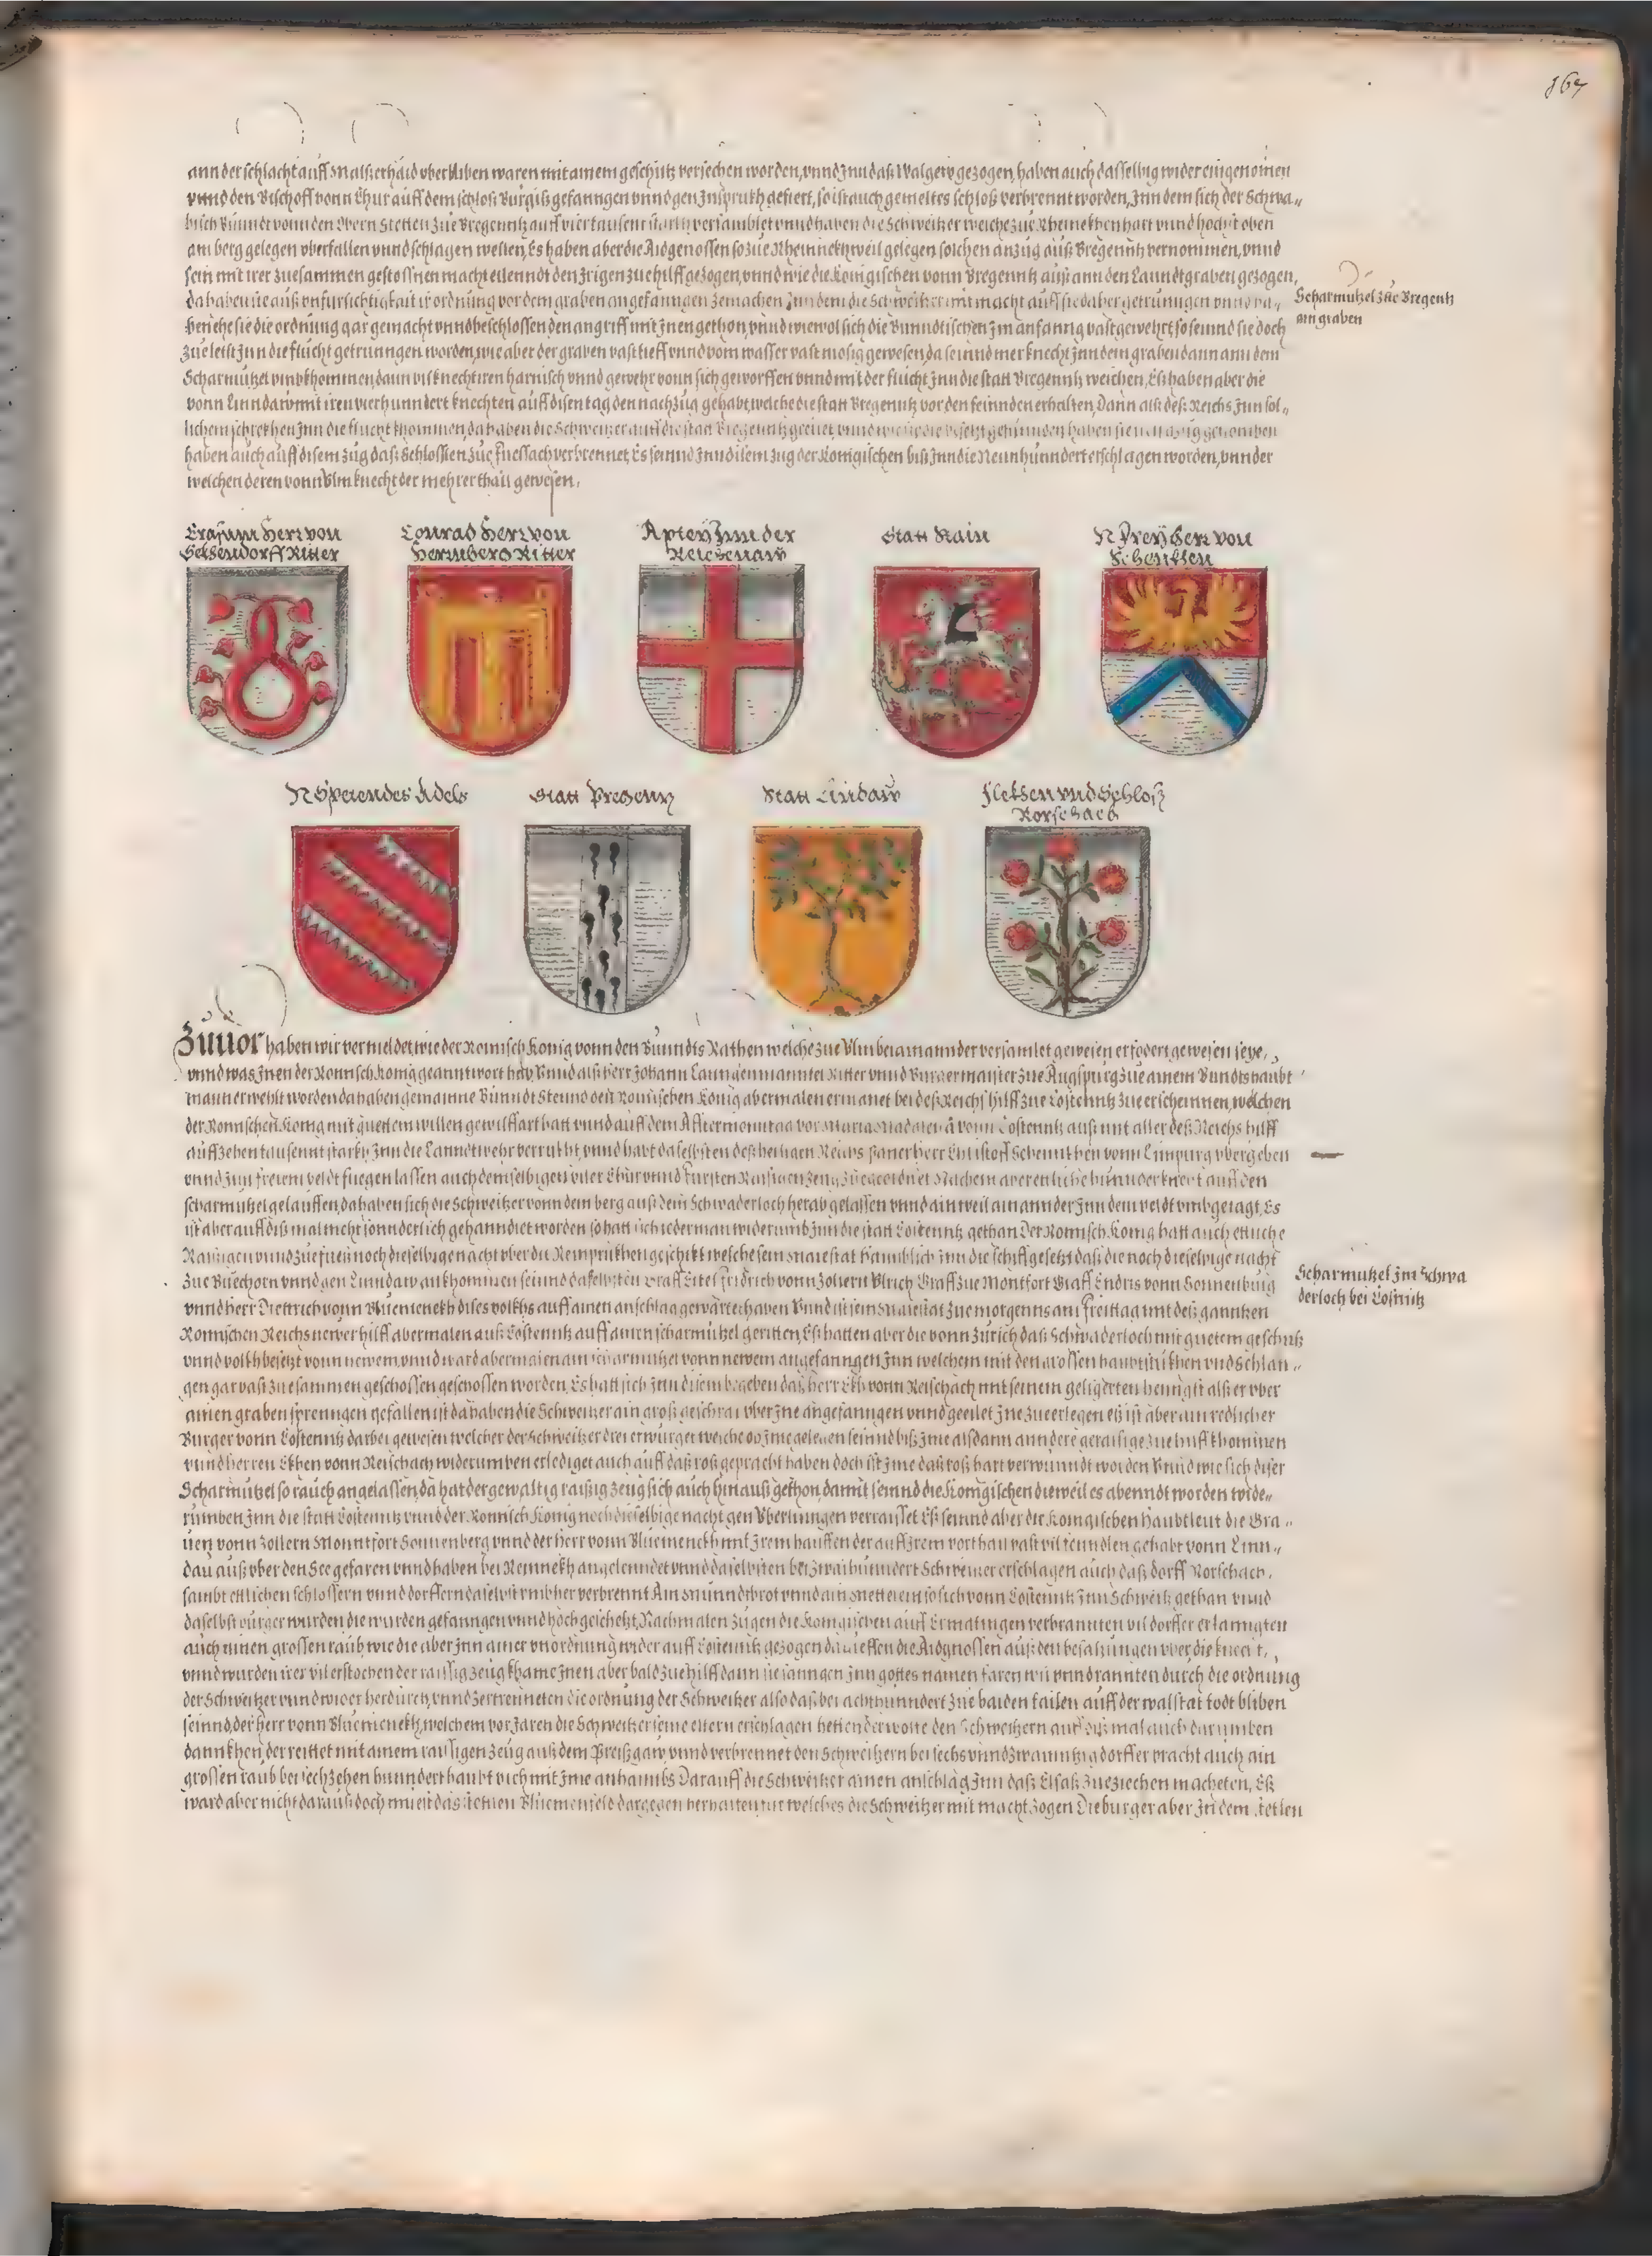 167
ann der schlacht auff Malserhaid vberbliben waren mit ainem geschütz versechen worden, vnnd Inn daß Walgew gezogen, haben auch dasselbig wider eingenomen
vnnd den Bischoff vonn Chur auff dem schloß Burgiß gefanngen vnnd gen Insprukh gefiert, so ist auch gemeltes schloß verbrennt worden, Inn dem sich der Schwa„
bisch Bunndt vonn den Obern Stetten Zue Bregenntz auff viertausent starkh versamblet vnnd haben die Schweitzer welche zue Rheinekhen hart vnnd hochst oben
am berg gelegen vberfallen vnnd schlagen wellen, Es haben aber die Aidgenossen so zue Rheinnekh weil gelegen solchen anzug auß Bregenntz vernomen, vnnd
sein mit irer zuesammen gestossnen macht eilenndt den Irigen zue hilff gezogen, vnnd wie die Königischen vonn Bregenntz auß ann den Lanndtgraben gezogen,
da haben sie auß vnfursichtigkait ir ordnung vor dem graben angefanngen zemachen Inn dem die Schweitzer mit macht auff sie daher getrungen vnnd ha„
ben ehe sie die ordnung gar gemacht vnnd beschlossen den angriff mit Inen gethon, vnnd wiewol sich die Bunndtischen Im anfanng vast gewehrt, so seinnd sie doch
zue letst Inn die flucht getrunngen worden, wie aber der graben vast tieff vnnd vom wasser vast mosig gewesen, da seinnd mer knecht Inn dem graben dann ann dem
Scharmützel vmbkhommen, dann vil knecht iren harnisch vnnd gewehr vonn sich geworffen vnnd mit der flucht Inn die statt Bregenntz weichen, Es haben aber die
vonn Linndaw mit iren vierhunndert knechten auff disen tag den nachzug gehabt, welche die statt Bregenntz vor den feinnden erhalten, Dann alß deß Reichs Inn sol„
lichem schrekhen Inn die flucht khommen, da haben die Schweitzer auff die statt Bregenntz geeilet, vnnd wie sie die besetzt gefunnden haben sie den abzug genomben
haben auch auff disem zug daß Schlosslen Zue Fuessach verbrennet, Es seinnd Inn disem zug der Königischen biß Inn die Neunhunndert erschlagen worden, vnnder
welchen deren vonn Vlm knecht der mehrer thail gewesen.
Scharmutzel zue Bregentz
am graben
Erasum Herr von
Ritter
Conrad Herr von
Hermberg Ritter
Aptey Inn der
Reichenaw
Statt Stain
N Freyherr von
Schenkhen
N des Adels
Statt Pregentz
Statt Lindaw
Flekhen vnd Schloß
Rorschach
Zuuor haben wir vermeldet, wie der Römisch König vonn den Bunndts Räthen welche zue Vlm beiainannder versamlet gewesen erfodert gewesen seye,
vnnd was Inen der Römisch König geanntwort hab, Vnnd alß herr Johann Lanngenmanntel Ritter vnnd Burgermaister Zue Augspurg zue ainem Bundtshaubt
man erwehlt worden da haben gemainne Bunndt Stennd den Römischen König abermalen ermanet bei deß Reichs hilff zue Costenntz zue erscheinnen, welchen
der Römischen König mit guettem willen gewilffart hatt vnnd auff dem Afftermonntag vor Maria Madalena vonn Costenntz auß mit aller deß Reichs hilff
auff zehen tausennt starkh, Inn die Lanndtwehr verrukht, vnnd hatt daselbsten deß heiligen Reichs paner herr Christoff Schennkhen vonn Limpurg vbergeben
vnnd Inn freiem veldt fliegen lassen auch demselbigen viler Chur vnnd Fursten Raisigen zeug zuegeordnet Nachem aber etliche hunndert knecht auff den
scharmützel gelauffen, da haben sich die Schweitzer vonn dem berg auß dem Schwaderloch herab gelassen vnnd ain weil ainannder Inn dem veldt vmbgeiagt, Es
ist aber auff diß mal nicht sonnderlich gehanndlet worden so hatt sich iederman widerumb Inn die statt Costenntz gethan. Der Römisch König hatt auch ettliche
Raisigen vnnd zue fuess noch dieselbige nacht vber die Reinprukhen geschikt welche sein Maiestat haimblich Inn die schiff gesetzt, daß die noch dieselbige nacht
Zue Buechorn vnnd gen Lindaw ankhommen, seinnd daselbsten Graff Eitel Fridrich vonn Zolern Vlrich Graff zue Montfort Graff Endris vonn Sonnenburg
vnnd herr Diettrich vonn Bluemenekh dises volkhs auff ainen anschlag gewärtet haben Vnnd ist sein Maiestat zue morgenns am Freittag mit deß ganntzen
Römischen Reichs hilff abermalen auß Costenntz auff ainen scharmützel geritten, Es hatten aber die vonn Zürich daß Schwaderloch mit guetem geschütz
vnnd volkh besetzt vonn newem, vnnd ward abermalen ain scharmutzel vonn newem angefanngen Inn welchem mit den grossen haubtstukhen vnd Schlan„
gen gar vast zuesammen geschossen worden, Es hatt sich Inn disem begeben daß herr Ekh vonn Reischach mit seinem geligerten henngst alß er vber
ainen graben sprenngen gefallen ist da haben die Schweitzer ain groß geschrai vber Ine angefanngen vnnd geeilet Ine zue erlegen es ist aber ain redlicher
Burger vonn Costenntz darbei gewesen welcher der Schweitzer drei erwürget welche ob Ime gelegen seinnd biß Ime alsdann anndere geraisige zue hilff khommen
vnnd herren Ekhen vonn Reischach widerumben erlediget auch auff daß roß gepracht haben doch ist Ime daß roß hart verwunndt worden Vnnd wie sich diser
Scharmützel so rauch angelassen, da hat der gewaltig raisig zeug sich auch hinauß gethon, damit seinnd die Königischen dieweil es abenndt worden wide„
rumben Inn die statt Costenntz vnnd der Römisch König noch dieselbige nacht gen Vberlinngen verraiset Es seinnd aber die Königischen haubtleut die Gra„
uen vonn Zollern Monntfort Sonnenberg vnnd der herr vonn Bluemenekh mit Irem hauffen der auff Irem vorthail vast vil gehabt vonn Linn„
dau auß vber den See gefaren vnnd haben bei Reinnekh angelenndet vnnd daselbsten bei zwaihunndert Schweitzer erschlagen auch daß dorff Rorschach,
sambt ettlichen schlössern vnnd dorffern daselbst vmbher verbrennt
daselbst bürger wurden die wurden gefanngen vnnd hoch geschetzt, Nachmalen zugen die Königischen auff Ermatingen verbrannten vil dörffer
auch ainen grossen raub wie die aber Inn ainer vnordnung wider auff Costenntz gezogen da die Aidgnossen auß den besatzungen vber die knecht,
vnnd wurden irer vil erstochen der raissig zeug khame Inen aber bald zue hilff dann sie sanngen Inn gottes namen faren wir vnnd rannten durch die ordnung
der Schweitzer vnnd wider herdurch, vnnd zertrenneten die ordnung der Schweitzer also daß bei achthunndert zue baiden tailen auff der walstat todt bliben
seinnd, der herr vonn Bluemenekh, welchem vor Jaren die Schweitzer seine eltern erschlagen hetten der wolte den Schweitzern auff diß mal auch darumben
dannkhen, der reittet mit ainem raissigen zeug auß dem Preißgaw vnnd verbrennet den Schweitzern bei sechs vnnd zwainntzig dörffer bracht auch ain
grossen raub bei sechzehen hunndert haubt vich mit Ime anhaimbs Darauff die Schweitzer ainen anschlag Inn daß Elsaß zue ziechen macheten, Es
ward aber nicht darauß doch mueßt das stetlen Bluemenfeld dargegen herhalten für welches die Schweitzer mit macht zogen Die burger aber In dem stetlen
Scharmutzel Im Schwa
derloch bei Costnitz